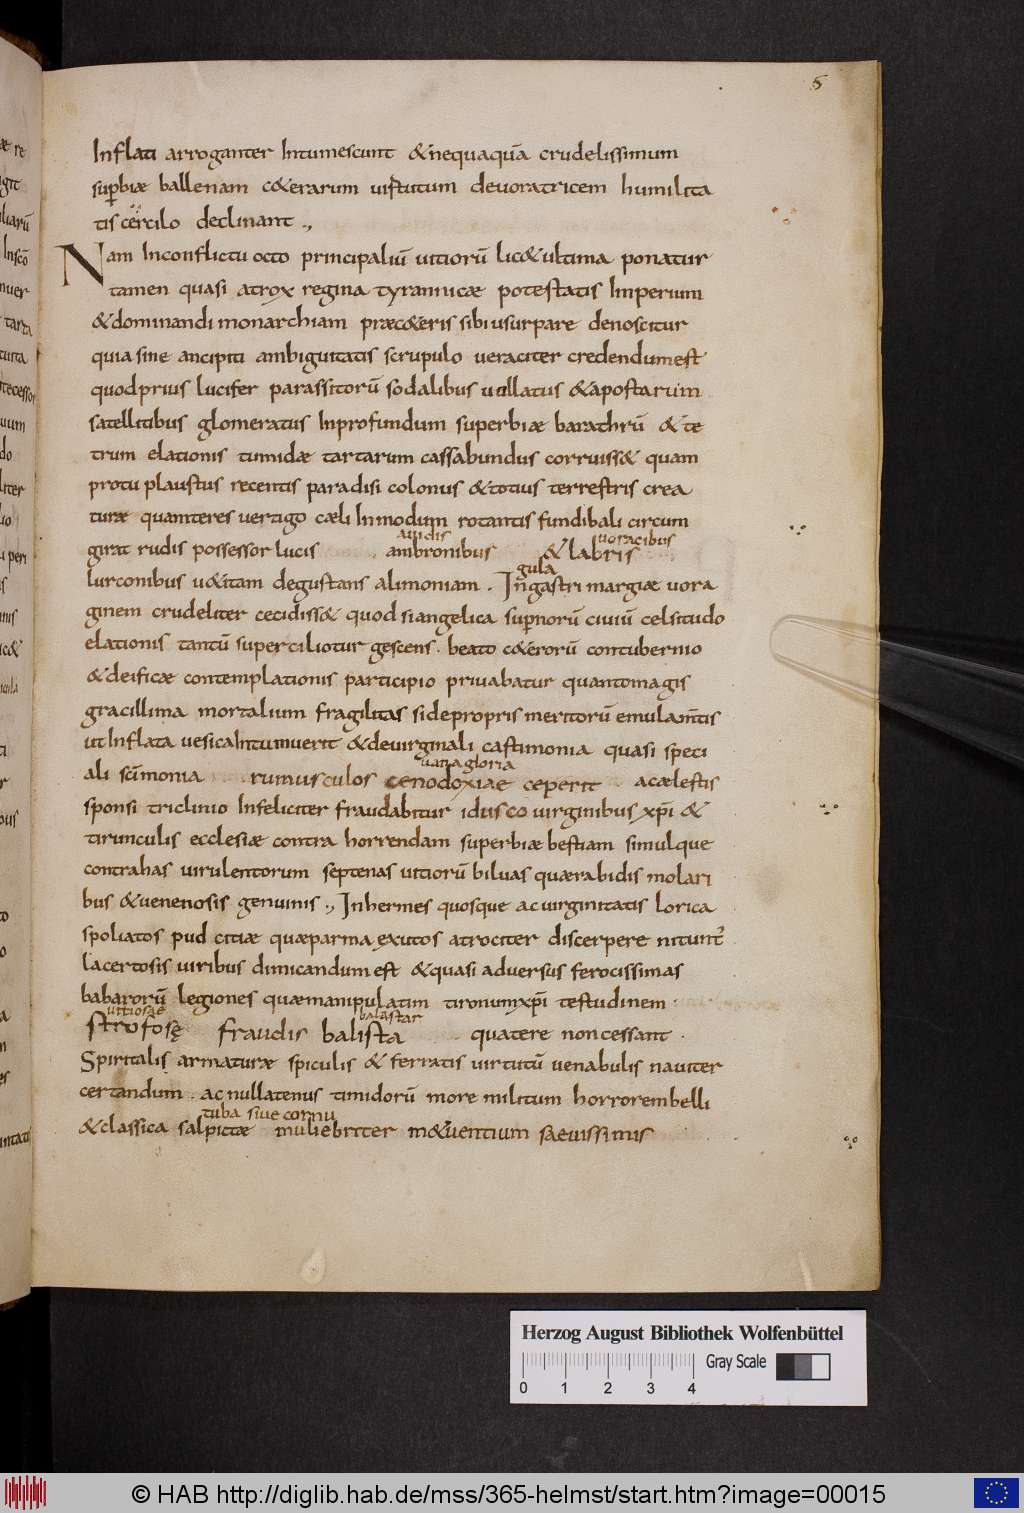 5
Inflati arroganter Intumescunt & nequaquā crudelissimum
sup̄biæ ballenam c&erarum uiſtutum deuoratricem humilita
tis cercilo declinant .,
Nam Inconflictu octo principaliū uitiorū lic& ultima ponatur
tamen quasi atrox regina tyrannicæ potestatis Imperium
& dominandi monarchiam præc&eris sibi usurpare denoscitur
quia sine ancipiti ambiguitatis scrupulo ueraciter credendum est
quod prius lucifer parassitorū sodalibus uallatus & apostarum
satellitibus glomeratus Inprofundum superbiæ barathrū & te
trum elationis tumidæ tartarum cassabundus corruiss& quam
protu plaustus recentis paradisi colonus & totius terrestris crea
turæ quamteres uertigo cæli Inmodum rotantis fundibali circum
auidis uoracibus
girat rudis possessor lucis ambronibus & labris
gula
lurconibus u&itam degustans alimoniam . In gastri margiæ uora
ginem crudeliter cecidiss& quod si angelica sup̄norū ciuiū celsitudo
elationis tantū supercilio turgescens . beato c&erorū contubernio
& deificæ contemplationis participio priuabatur quanto magis
gracillima mortalium fragilitas si de propris meritorū emulamtis
ut Inflata uesica Intumuerit & de uirginali castimonia quasi speci
uana gloria
ali sc̄imonia rumusculos cenodoxiae ceperit a cælestis
sponsi triclinio Infeliciter fraudabitur idusco uirginibus xp̄i &
tirunculis ecclesiæ contra horrendam superbiæ bestiam simulque
contra has uirulentorum septenas uitiorū biluas quæ rabidis molari
bus & uenenosis genuinis ., Inhermes quosque ac uirginitatis lorica
spoliatos pudicitiæ quæ parma exutos atrociter discerpere nitunt̄
lacertosis uiribus dimicandum est & quasi aduersus ferocissimas
babarorū legiones quæ manipulatim tironum xp̄i testudinem .
uitiosae balastar
strofosę fraudis balista quatere non cessant .
Spiritalis armaturæ spiculis & ferratis uirtutū uenabulis nauiter
certandum . ac nullatenus timidorū more militum horrorem belli
tuba siue cornu
& classica salpictæ muliebriter m&uentium saeuissimis
Herzog August Bibliothek Wolfenbüttel
Gray Scale
0 1 2 3 4
© HAB http://diglib.hab.de/mss/365-helmst/start.htm?image=00015